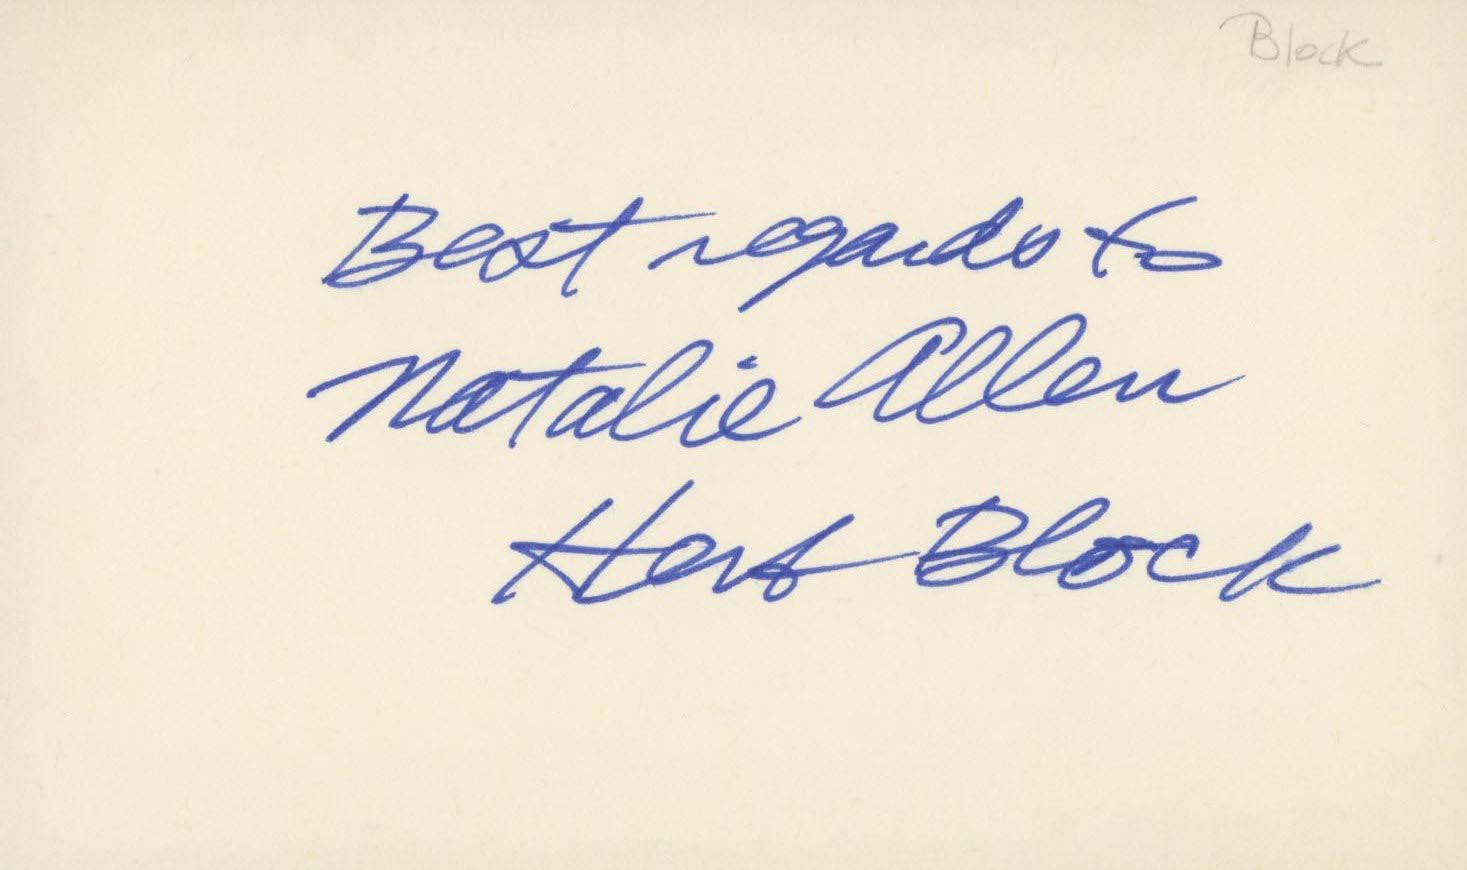 Block
Best regards to
Natalie Allen
Herb Block